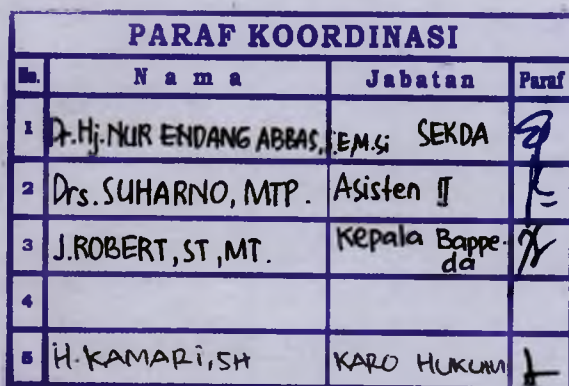 PARAF KOORDINASI
No. Nama Jabatan Paraf
1 Dr. Hj. NUR ENDANG ABBAS, SE M.Si SEKDA
2 Drs. SUHARNO, MTP. Asisten II
3 J. ROBERT, ST, MT. Kepala Bappe-
da
4
5 H. KAMARI, SH KARO HUKUM